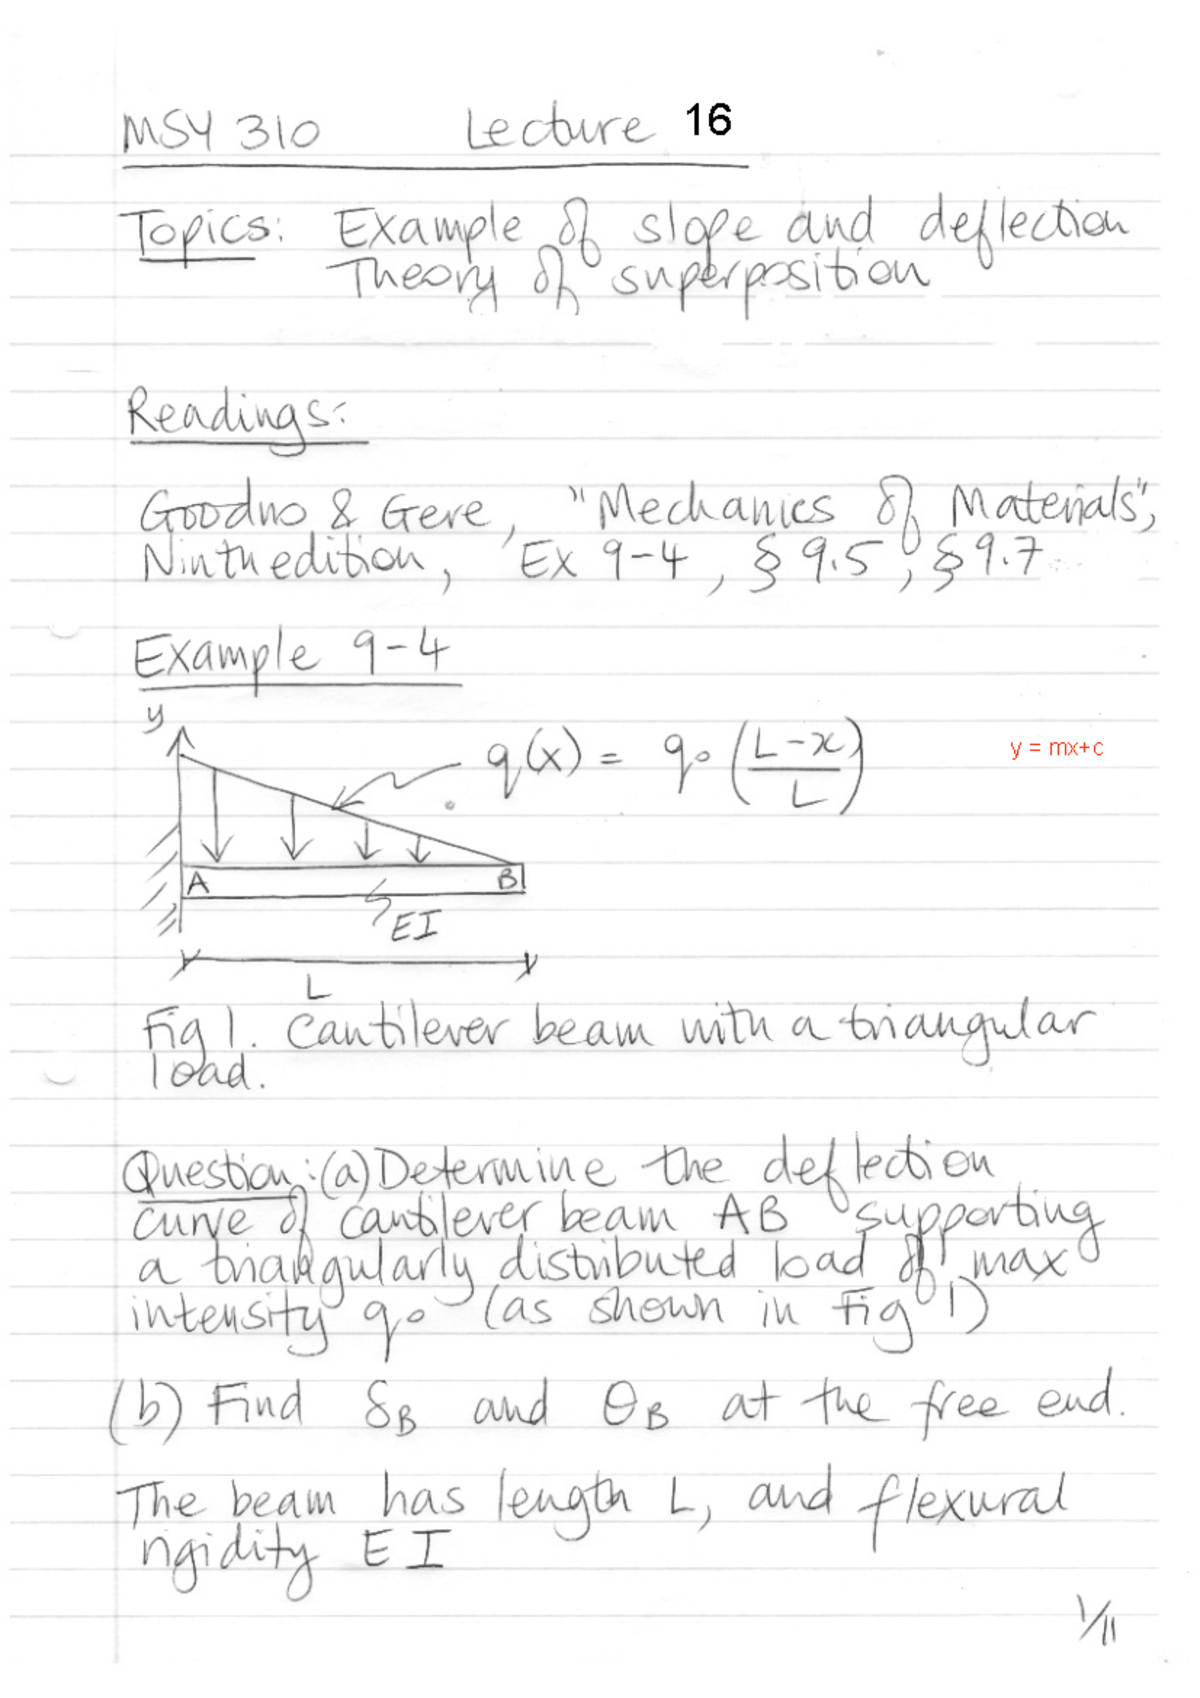 MSY 310 Lecture 16
Topics: Example of slope and deflection
Theory of superposition
Readings:
Goodno & Gere, "Mechanics of Materials",
Ninth edition, Ex 9-4, § 9.5, § 9.7
Example 9-4
y
q(x) = q₀ (L-x / L)
y = mx+c
A
B
EI
L
Fig 1. Cantilever beam with a triangular
load.
Question: (a) Determine the deflection
curve of cantilever beam AB supporting
a triangularly distributed load of max
intensity q₀ (as shown in Fig 1)
(b) Find δB and θB at the free end.
The beam has length L, and flexural
rigidity EI
1/11